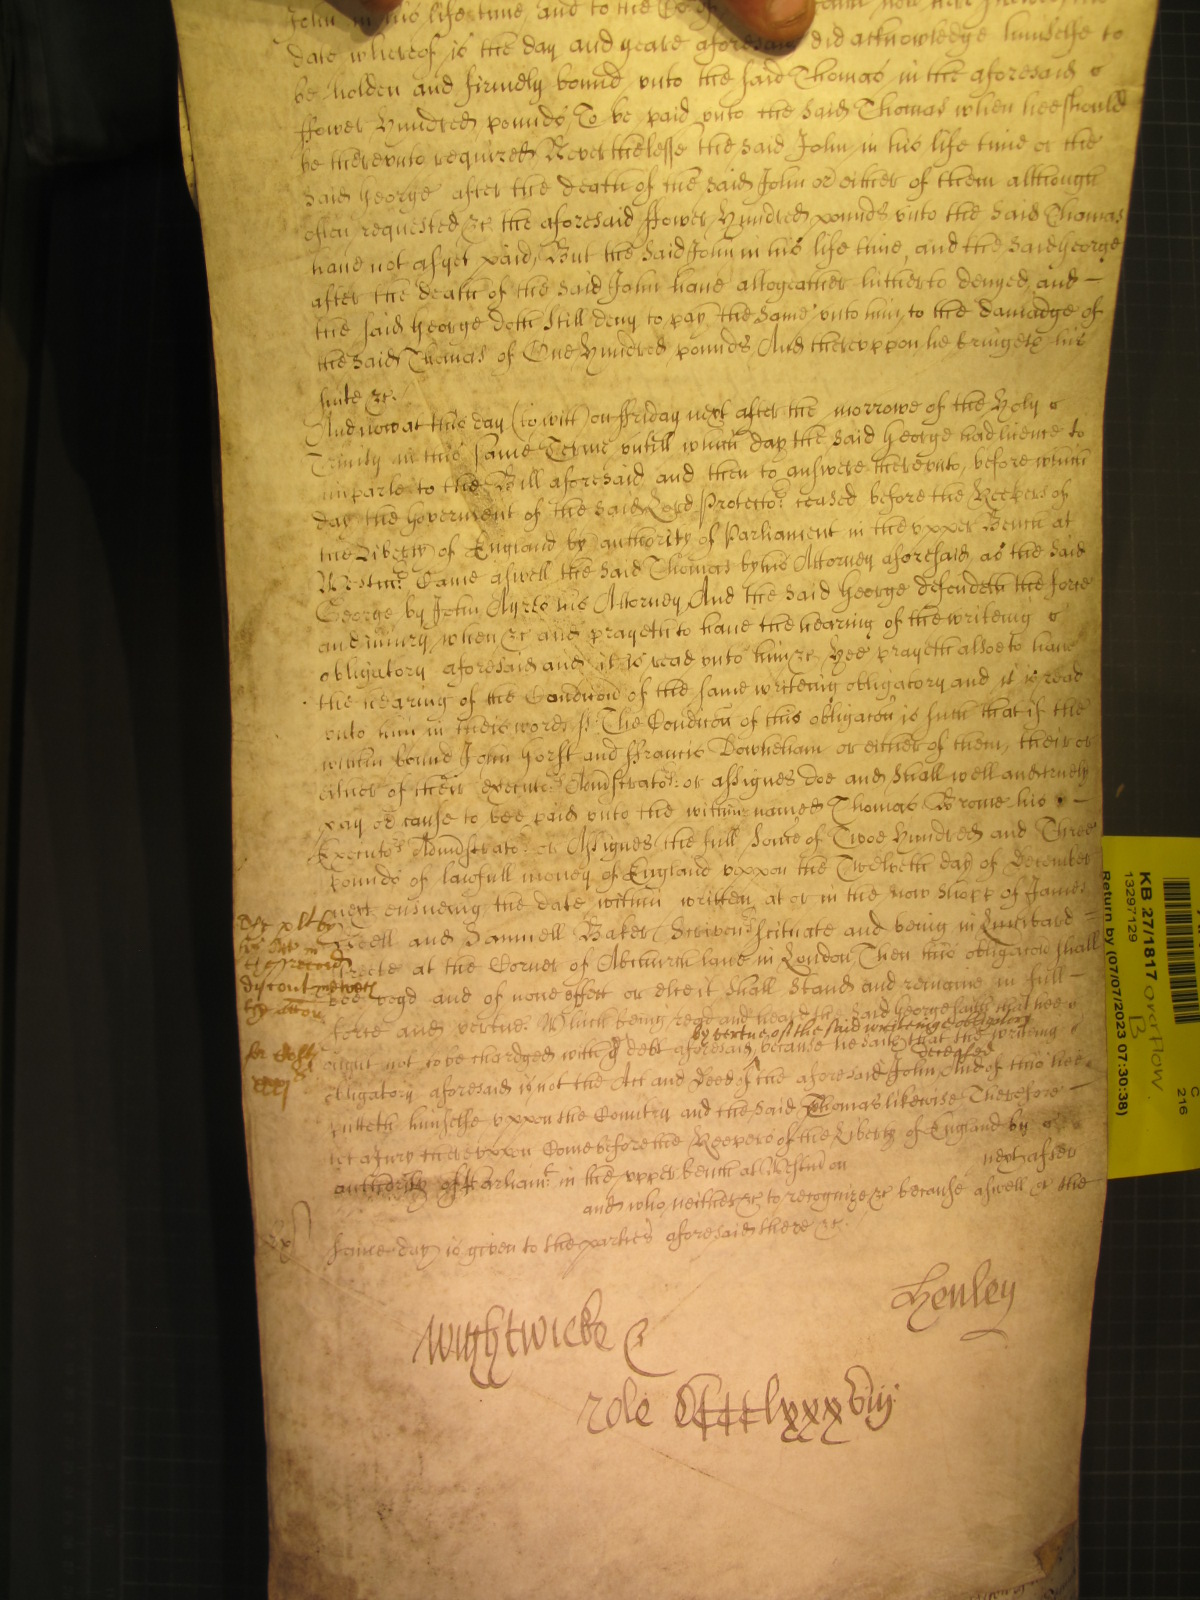 John in his life time, and to the Co
date whereof is the day and yeare aforesaid did acknowledge himselfe to
be holden and firmely bound unto the said Thomas in the aforesaid
ffower Hundred pounds To be paid unto the said Thomas when hee should
be thereunto required Neverthelesse the said John in his life time or the
said George after the death of the said John or either of them although
often requested &c the aforesaid ffower Hundred pounds unto the said Thomas
have not as yet paid, But the said John in his life time, and the said George
after the death of the said John have altogeather hitherto denyed, and —
the said George doth still deny to pay the same unto him, to the damadge of
the said Thomas of One Hundred pounds And thereuppon he bringeth his
suite &c.
And now at this day (to witt) on ffriday next after the morrowe of the Holy
Trinity in this same Terme untill which day the said George had licence to
imparle to the Bill aforesaid and then to answere thereunto, before which
day the Goverment of the said Lord Protector ceased before the Keepers of
the Liberty of England by authority of Parliament in the upper Bench at
Westmr. Came aswell the said Thomas by his Attorney aforesaid as the said
George by John Ayres his Attorney, And the said George defendeth the force
and iniury when &c and prayeth to have the hearing of the writeing
obligatory aforesaid and it is read unto him &c Hee prayeth alsoe to have
the hearing of the Condicon of the same writeing obligatory and it is read
unto him in theis words ss. The Condicon of this obligacon is such that if the
within bound John Gorst and ffrancis Downeham or either of them, their or
either of their Executors Administrators or assignes doe and shall well and truely
pay or cause to bee paid unto the within named Thomas Brome his —
Executors Administrators or Assignes the full Some of Twoe Hundred and Three
Pounds of lawfull money of England uppon the Twelveth day of December
next ensueing the date within written at or in the now shopp of James
Noell and Samuell Baker Scriveners scituate and being in Lumbard —
Streete at the Corner of Abchurch lane in London Then this obligacon shall
bee voyd and of none effect or else it shall stand and remaine in full —
force and vertue. Which being read and heard the said George saith that hee
by vertue of the said writeinge obligatory
ought not to be chardged with the debt aforesaid, because he saith that the writeing
deceased
obligatory aforesaid is not the Act and Deed of the aforesaid John And of this hee
putteth himselfe uppon the Country and the said Thomas likewise Therefore —
let a Jury thereuppon Come before the Keepers of the Liberty of England by
authority of Parliamt. in the upper bench at Westmr on next after
and who neither &c to recognize &c because aswell &c the
same day is given to the parties aforesaid there &c.
Wightwicke
Henley
role CCCClxxxviij
KB 27/1817 overflow
B
13297129
Return by (07/07/2023 07:30:38)
C
216